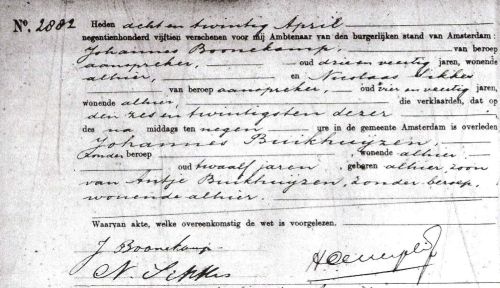 No. 2882
Heden acht en twintig April
negentienhonderd vijftien verschenen voor mij Ambtenaar van den burgerlijken stand van Amsterdam:
Johannes Boonekamp, van beroep
aanspreker, oud drie en veertig jaren, wonende
alhier, en Nicolaas Sikkes
van beroep aanspreker, oud vier en veertig jaren,
wonende alhier, die verklaarden, dat op
den zes en twintigsten dezer
des na middags ten negen ure in de gemeente Amsterdam is overleden
Johannes Buikhuyzen,
zonder beroep wonende alhier
oud twaalf jaren, geboren alhier, zoon
van Antje Buikhuyzen, zonder beroep,
wonende alhier.
Waarvan akte, welke overeenkomstig de wet is voorgelezen.
J Boonekamp
N. Sikkes